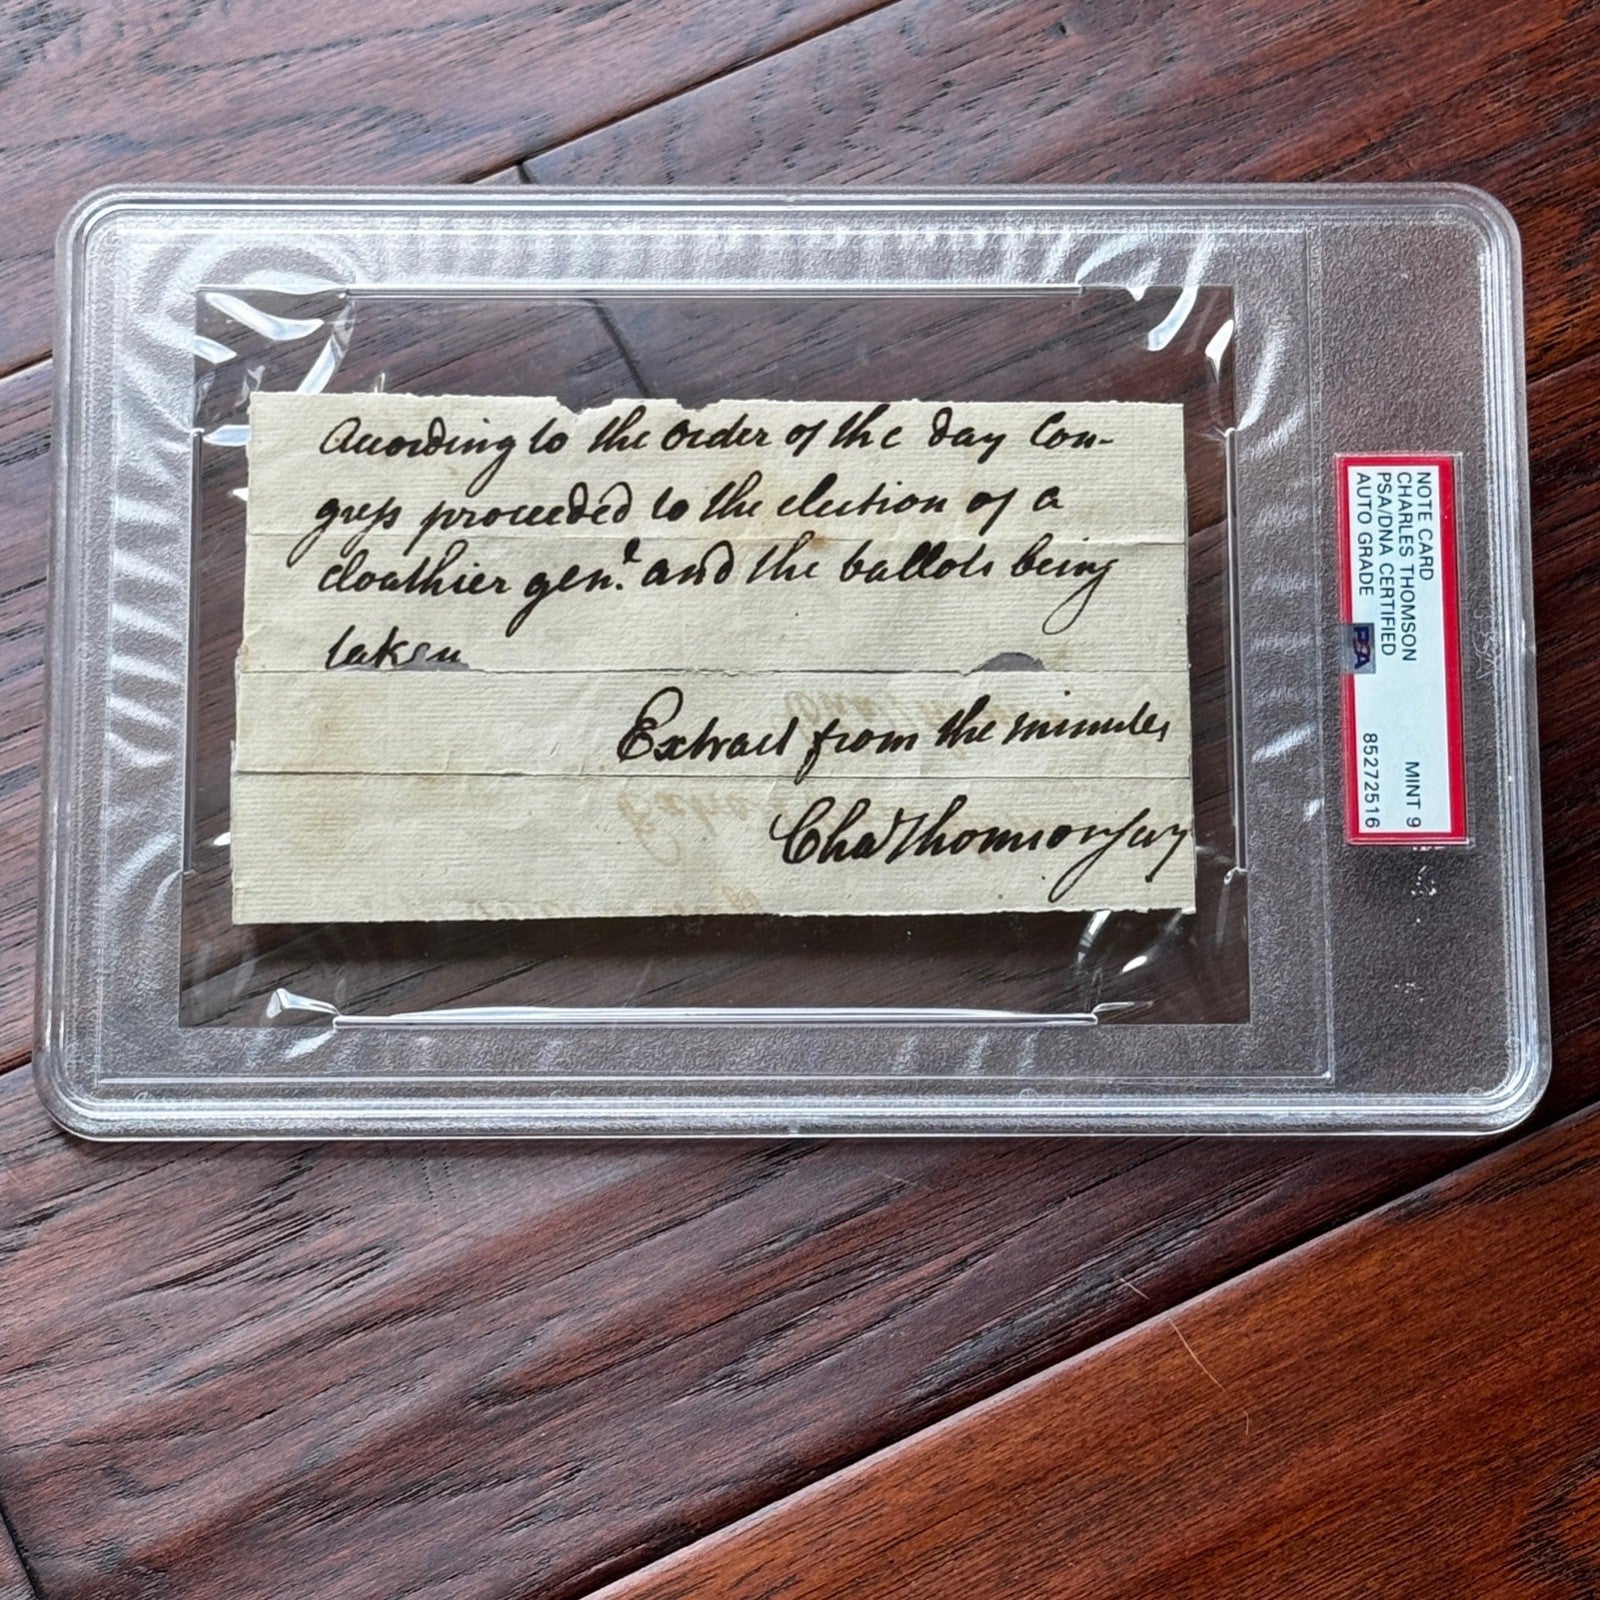 According to the order of the day Con-
gress proceeded to the election of a
cloathier gen.l and the ballots being
taken
Extract from the minutes
Cha Thomson secy
NOTE CARD
CHARLES THOMSON
PSA/DNA CERTIFIED
AUTO GRADE
MINT 9
85272516
PSA